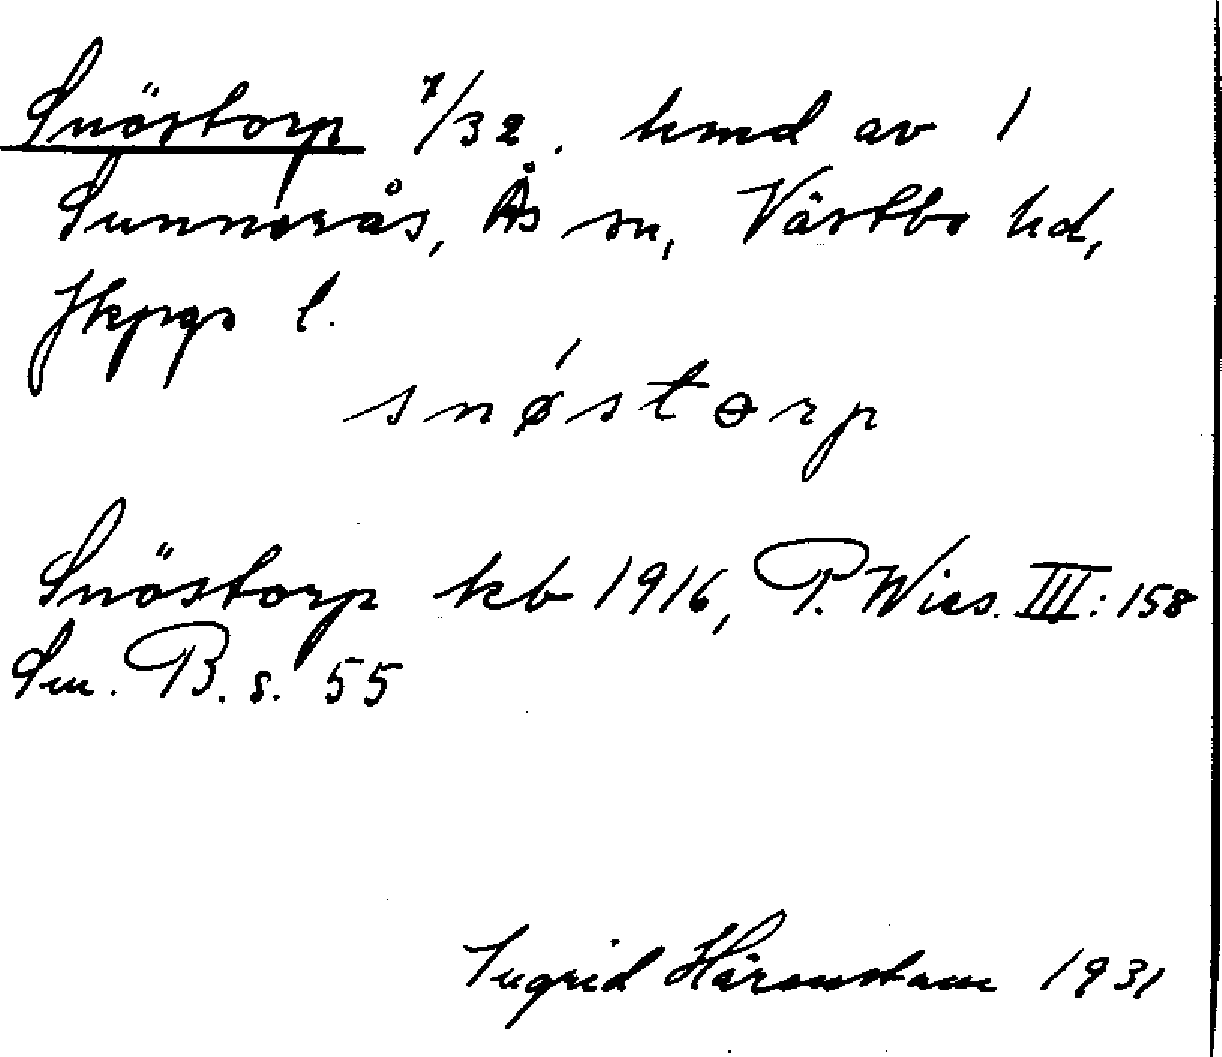 Snöstorp 7/32. hmd av 1
Sunnerås, Ås sn, Västbo hd,
Jkpgs l.
snǿstɵrp
Snöstorp kb 1916, P. Wies. III: 158
Sm. B. s. 55
Ingrid Härenstam 1931